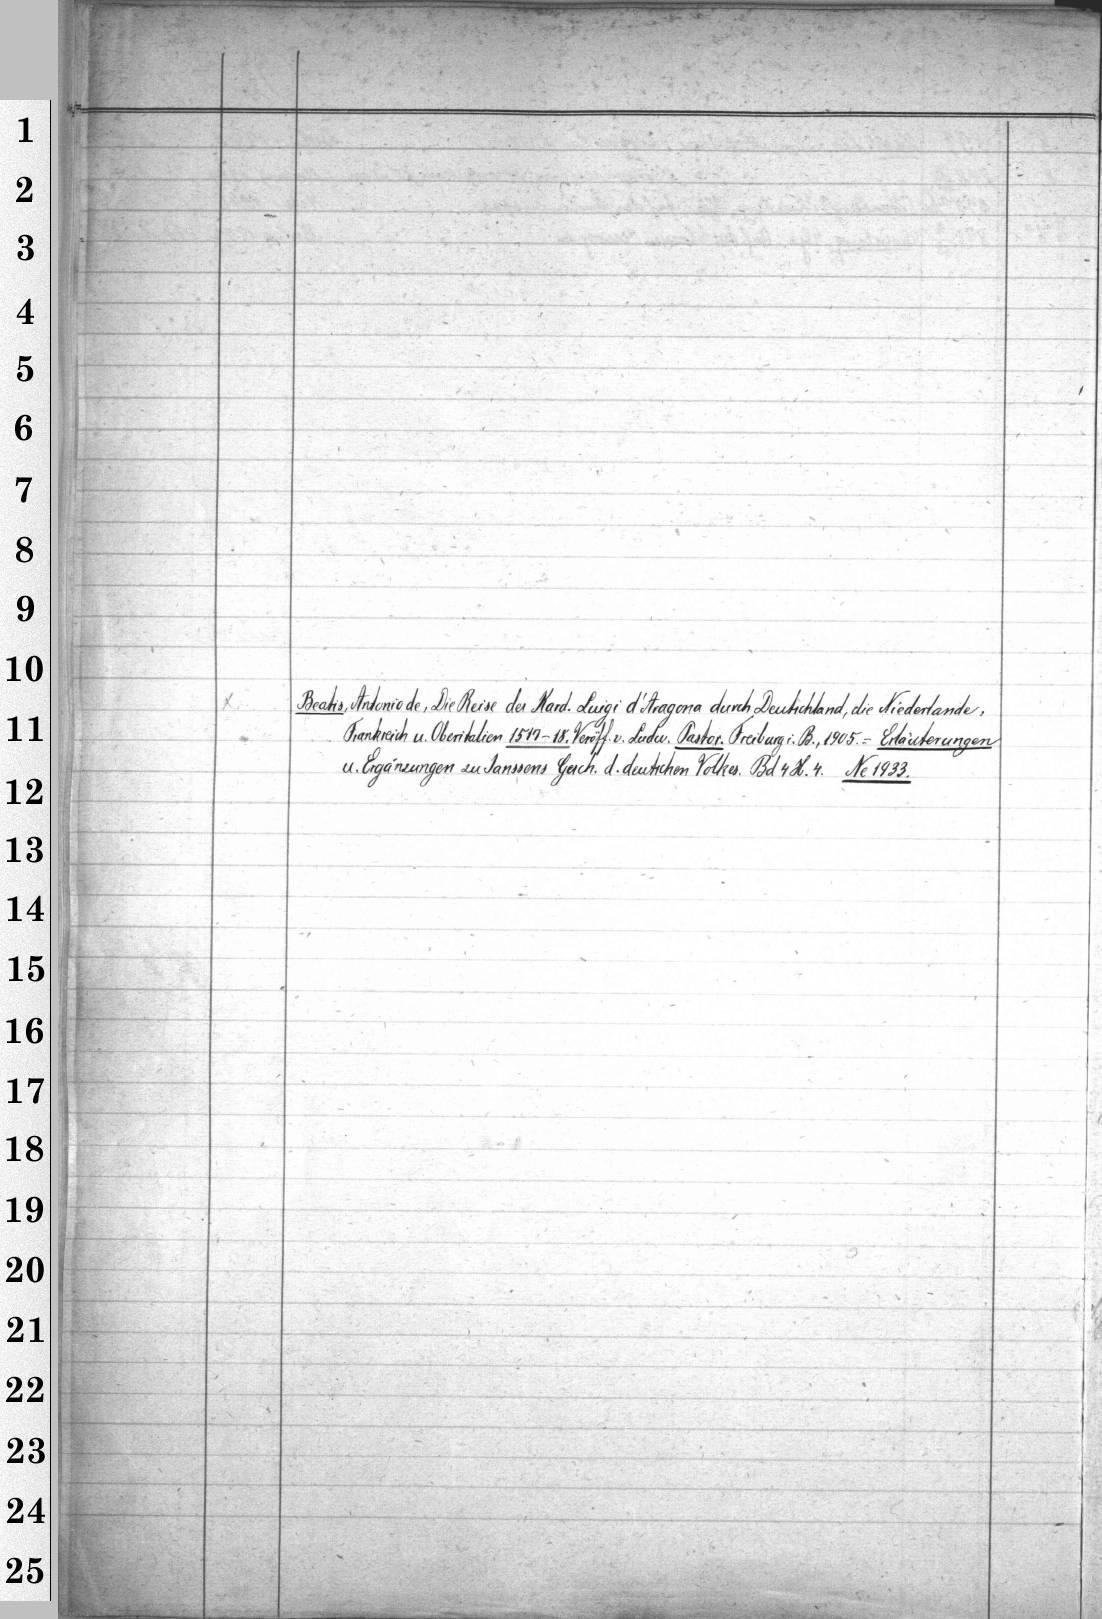 1
2
3
4
5
6
7
8
9
10
x Beatis, Antonio de, Die Reise des Kard. Luigi d'Aragona durch Deutschland, die Niederlande,
11
Frankreich u. Oberitalien 1517-18. Veröff. v. Ludw. Pastor. Freiburg i. B., 1905.= Erläuterungen
u. Ergänzungen zu Janssens Gesch. d. deutschen Volkes. Bd 4 H. 4. Ne 1933.
12
13
14
15
16
17
18
19
20
21
22
23
24
25